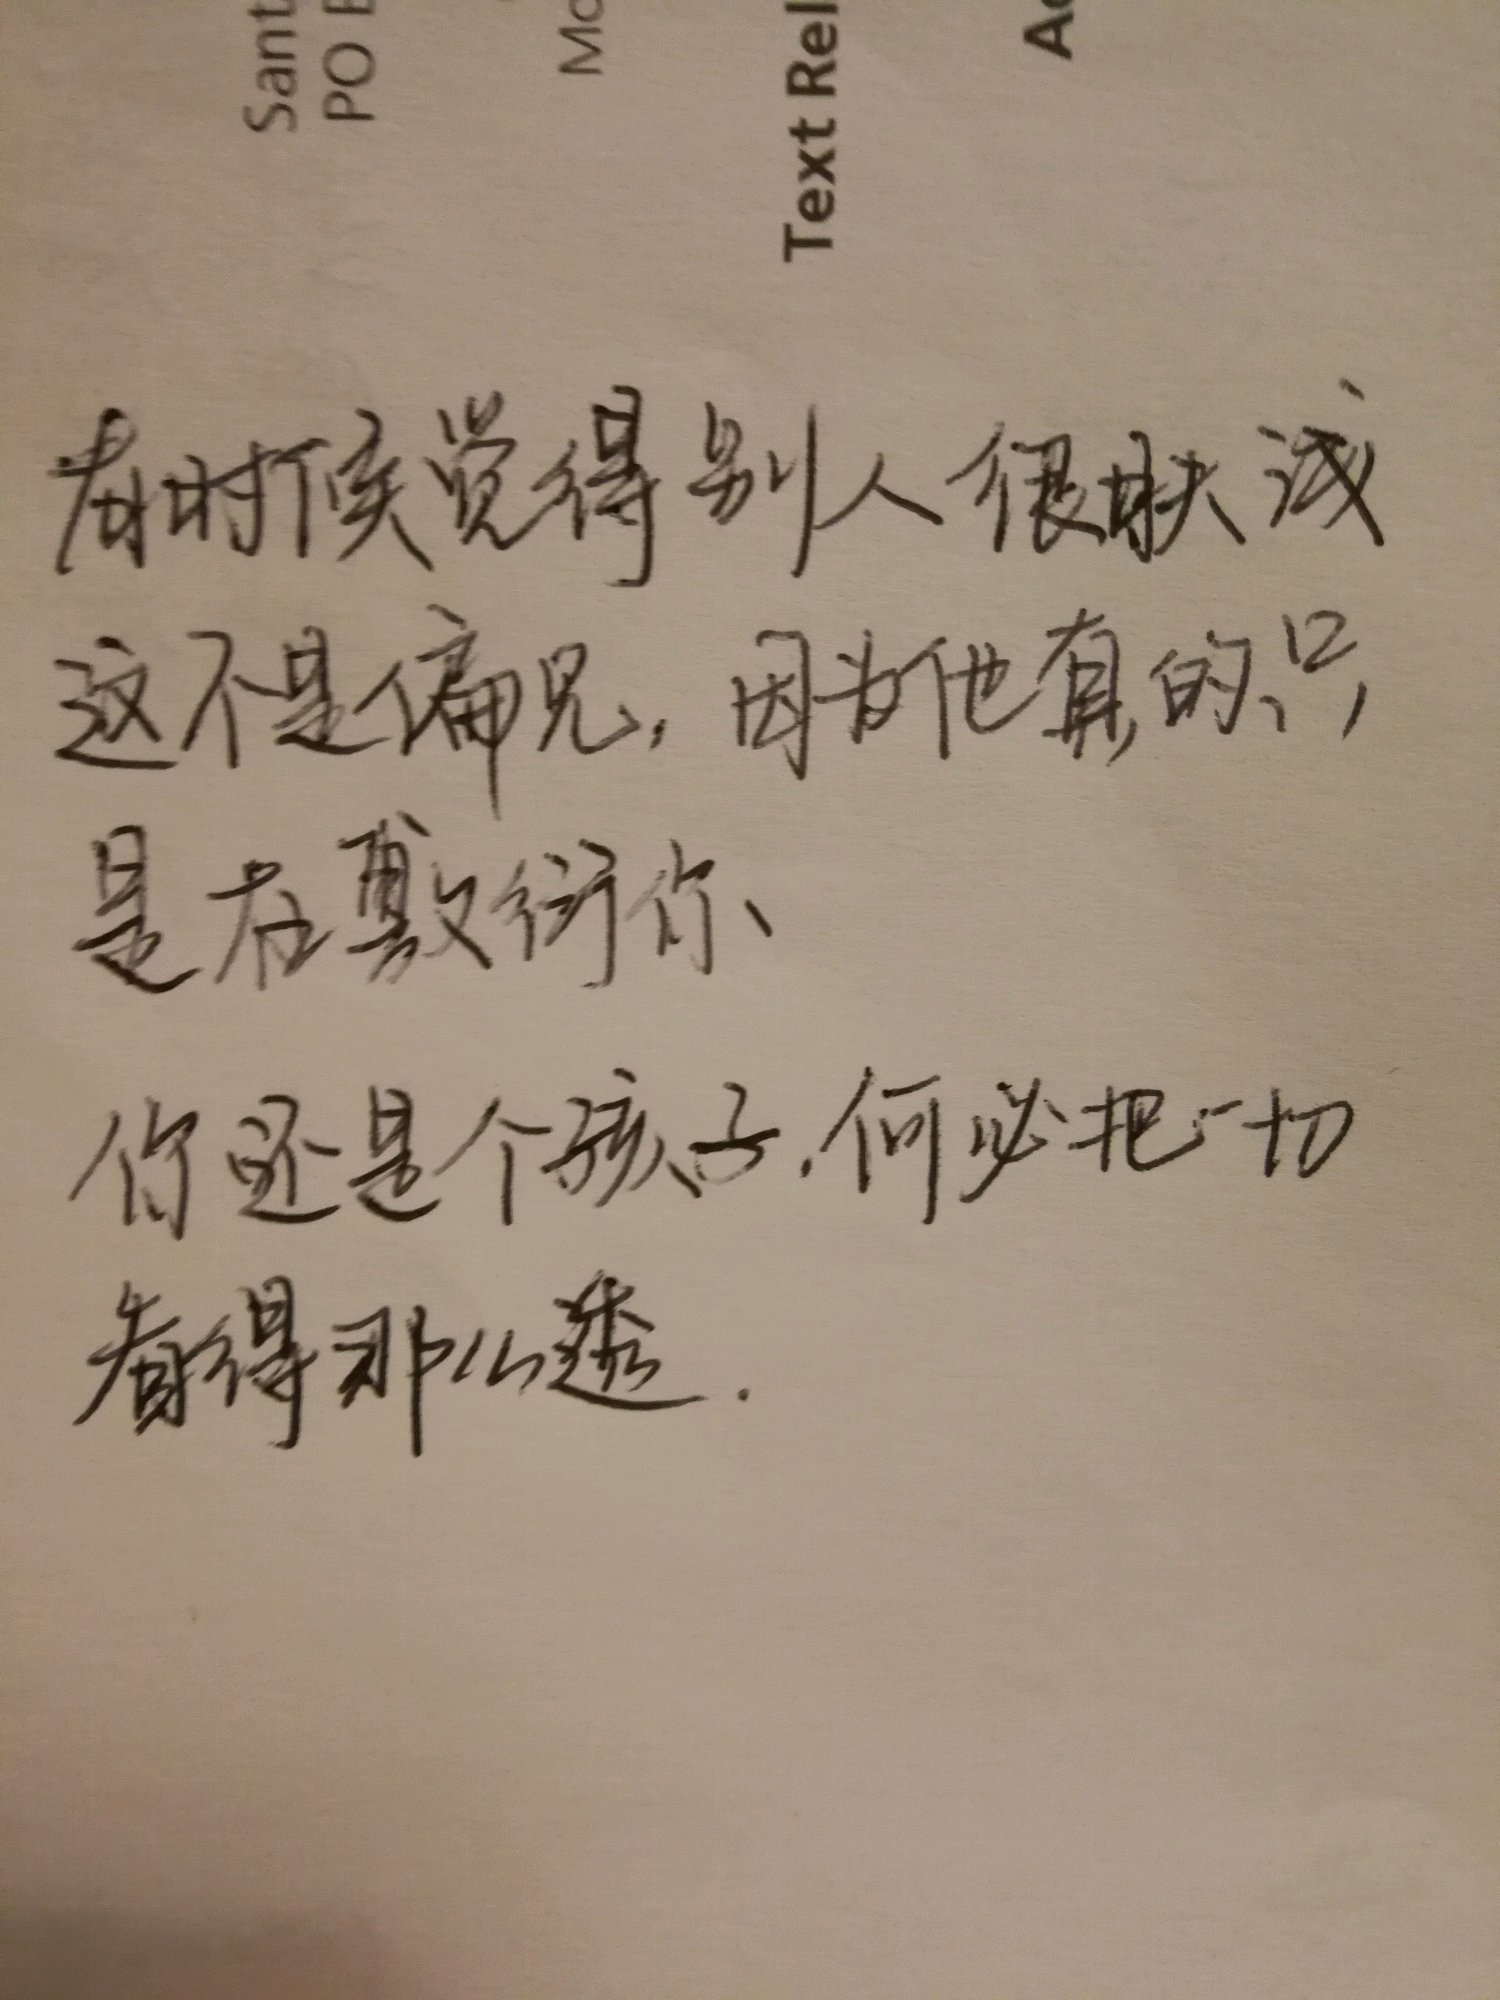 Sant
PO B
Mo
Text Rel
Ac
有时候觉得别人很肤浅
这不是偏见，因为他真的只
是在敷衍你、
你还是个孩子，何必把一切
看得那么透.